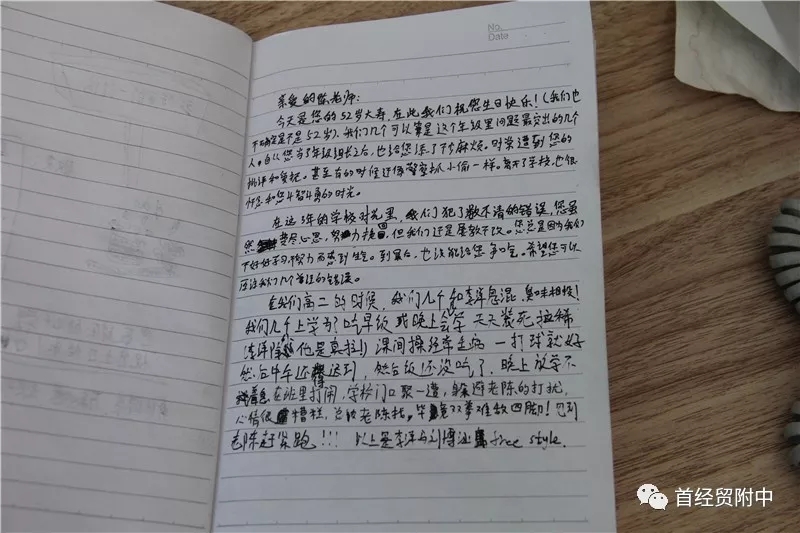 No.
Date
亲爱的陈老师:
今天是您的52岁大寿,在此我们祝您生日快乐!(我们也
不确定是不是52岁),我们几个可以算是这个年级里问题最突出的几个
人,自从您当了年级组长之后,也给您添了不少麻烦。时常遭到您的
批评和责把。甚至有的时候还像警察抓小偷一样。离开了学校,也很
怀念和您斗智斗勇的时光。
在这3年的学校时光里,我们犯了数不清的错误,您虽
然费尽心思,努力挽回,但我们还是屡教不改。您总是因为我们
不好好学习不努力而感到生气。到最后,也没能给您争口气。希望您可以
原谅我们几个曾经的错误。
在我们高二的时候,我们几个和李洋鬼混,臭味相投!
我们几个上学不吃早饭 或晚上会餐 天天装死拉稀
(李洋除外他是真拉) 课间操经常走病 一打球就好
然后中午还迟到,然后饭还没吃了,晚上放学不
着急 在班里打闹,学校门口聚一遭,躲避老陈的打扰,
心情很糟糕,总被老陈找,毕竟双拳难敌四脚!见到
老陈赶紧跑!!! 以上是李洋与刘博 free style.
首经贸附中